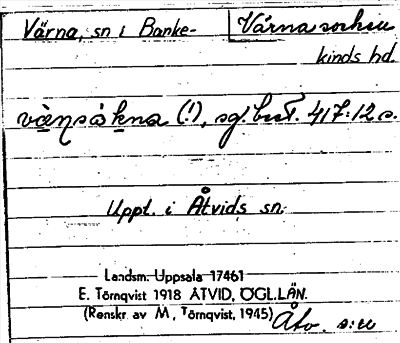 Värna, sn i Banke-
Värna socken
kinds hd.
(!), sg. best. 417:12 s.
Uppt. i Åtvids sn.
Landsm. Uppsala 17461
E. Törnqvist 1918 ÅTVID, ÖGL.LÄN.
(Renskr. av M. Törnqvist, 1945)
Åtv. s:n